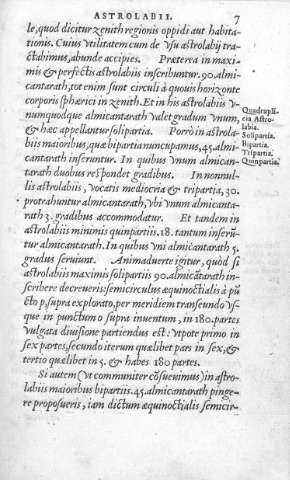 ASTROLABII. 7
le, quod dicitur zenith regionis oppidi aut habita
tionis. Cuius vtilitatem cum de vsu astrolabij tra-
ctabimus, abunde accipies. Præterea in maxi-
mis & perfectis astrolabiis inscribuntur. 90. almi-
cantarath, tot enim sunt circuli à quouis horizonte
corporis sphærici in zenith. Et in his astrolabiis v-
numquodque almicantarath valet gradum vnum,
& hæc appellantur solipartia. Porrò in astrola-
biis maioribus, quæ bipartia nuncupamus, 45. almi-
cantarath inseruntur. In quibus vnum almican-
tarath duobus respondet gradibus. In nonnul-
lis astrolabiis, vocatis mediocria & tripartia, 30.
protrahuntur almicantarath, vbi vnum almicanta-
rath 3. gradibus accommodatur. Et tandem in
astrolabiis minimis quinpartiis. 18. tantum inserũ-
tur almicantarath. In quibus vni almicantarath 5.
gradus seruiunt. Animaduerte igitur, quòd si
astrolabiis maximis solipartiis 90. almicãtarath in-
scribere decreueris: semicirculus æquinoctialis à pũ
cto p, supra explorato, per meridiem transeundo vs-
que in punctum o supra inuentum, in 180. partes
vulgata diuisione partiendus est: vtpote primo in
sex partes, secundo iterum quælibet pars in sex, &
tertio quælibet in 5. & habes 180 partes.
Si autem (vt communiter cõsueuimus) in astro-
labiis maioribus bipartiis. 45. almicantarath pinge-
re proposueris, iam dictum æquinoctialis semicir-
Quadrupli-
cia Astro-
labia.
Solipartia.
Bipartia.
Tripartia.
Quinpartia.